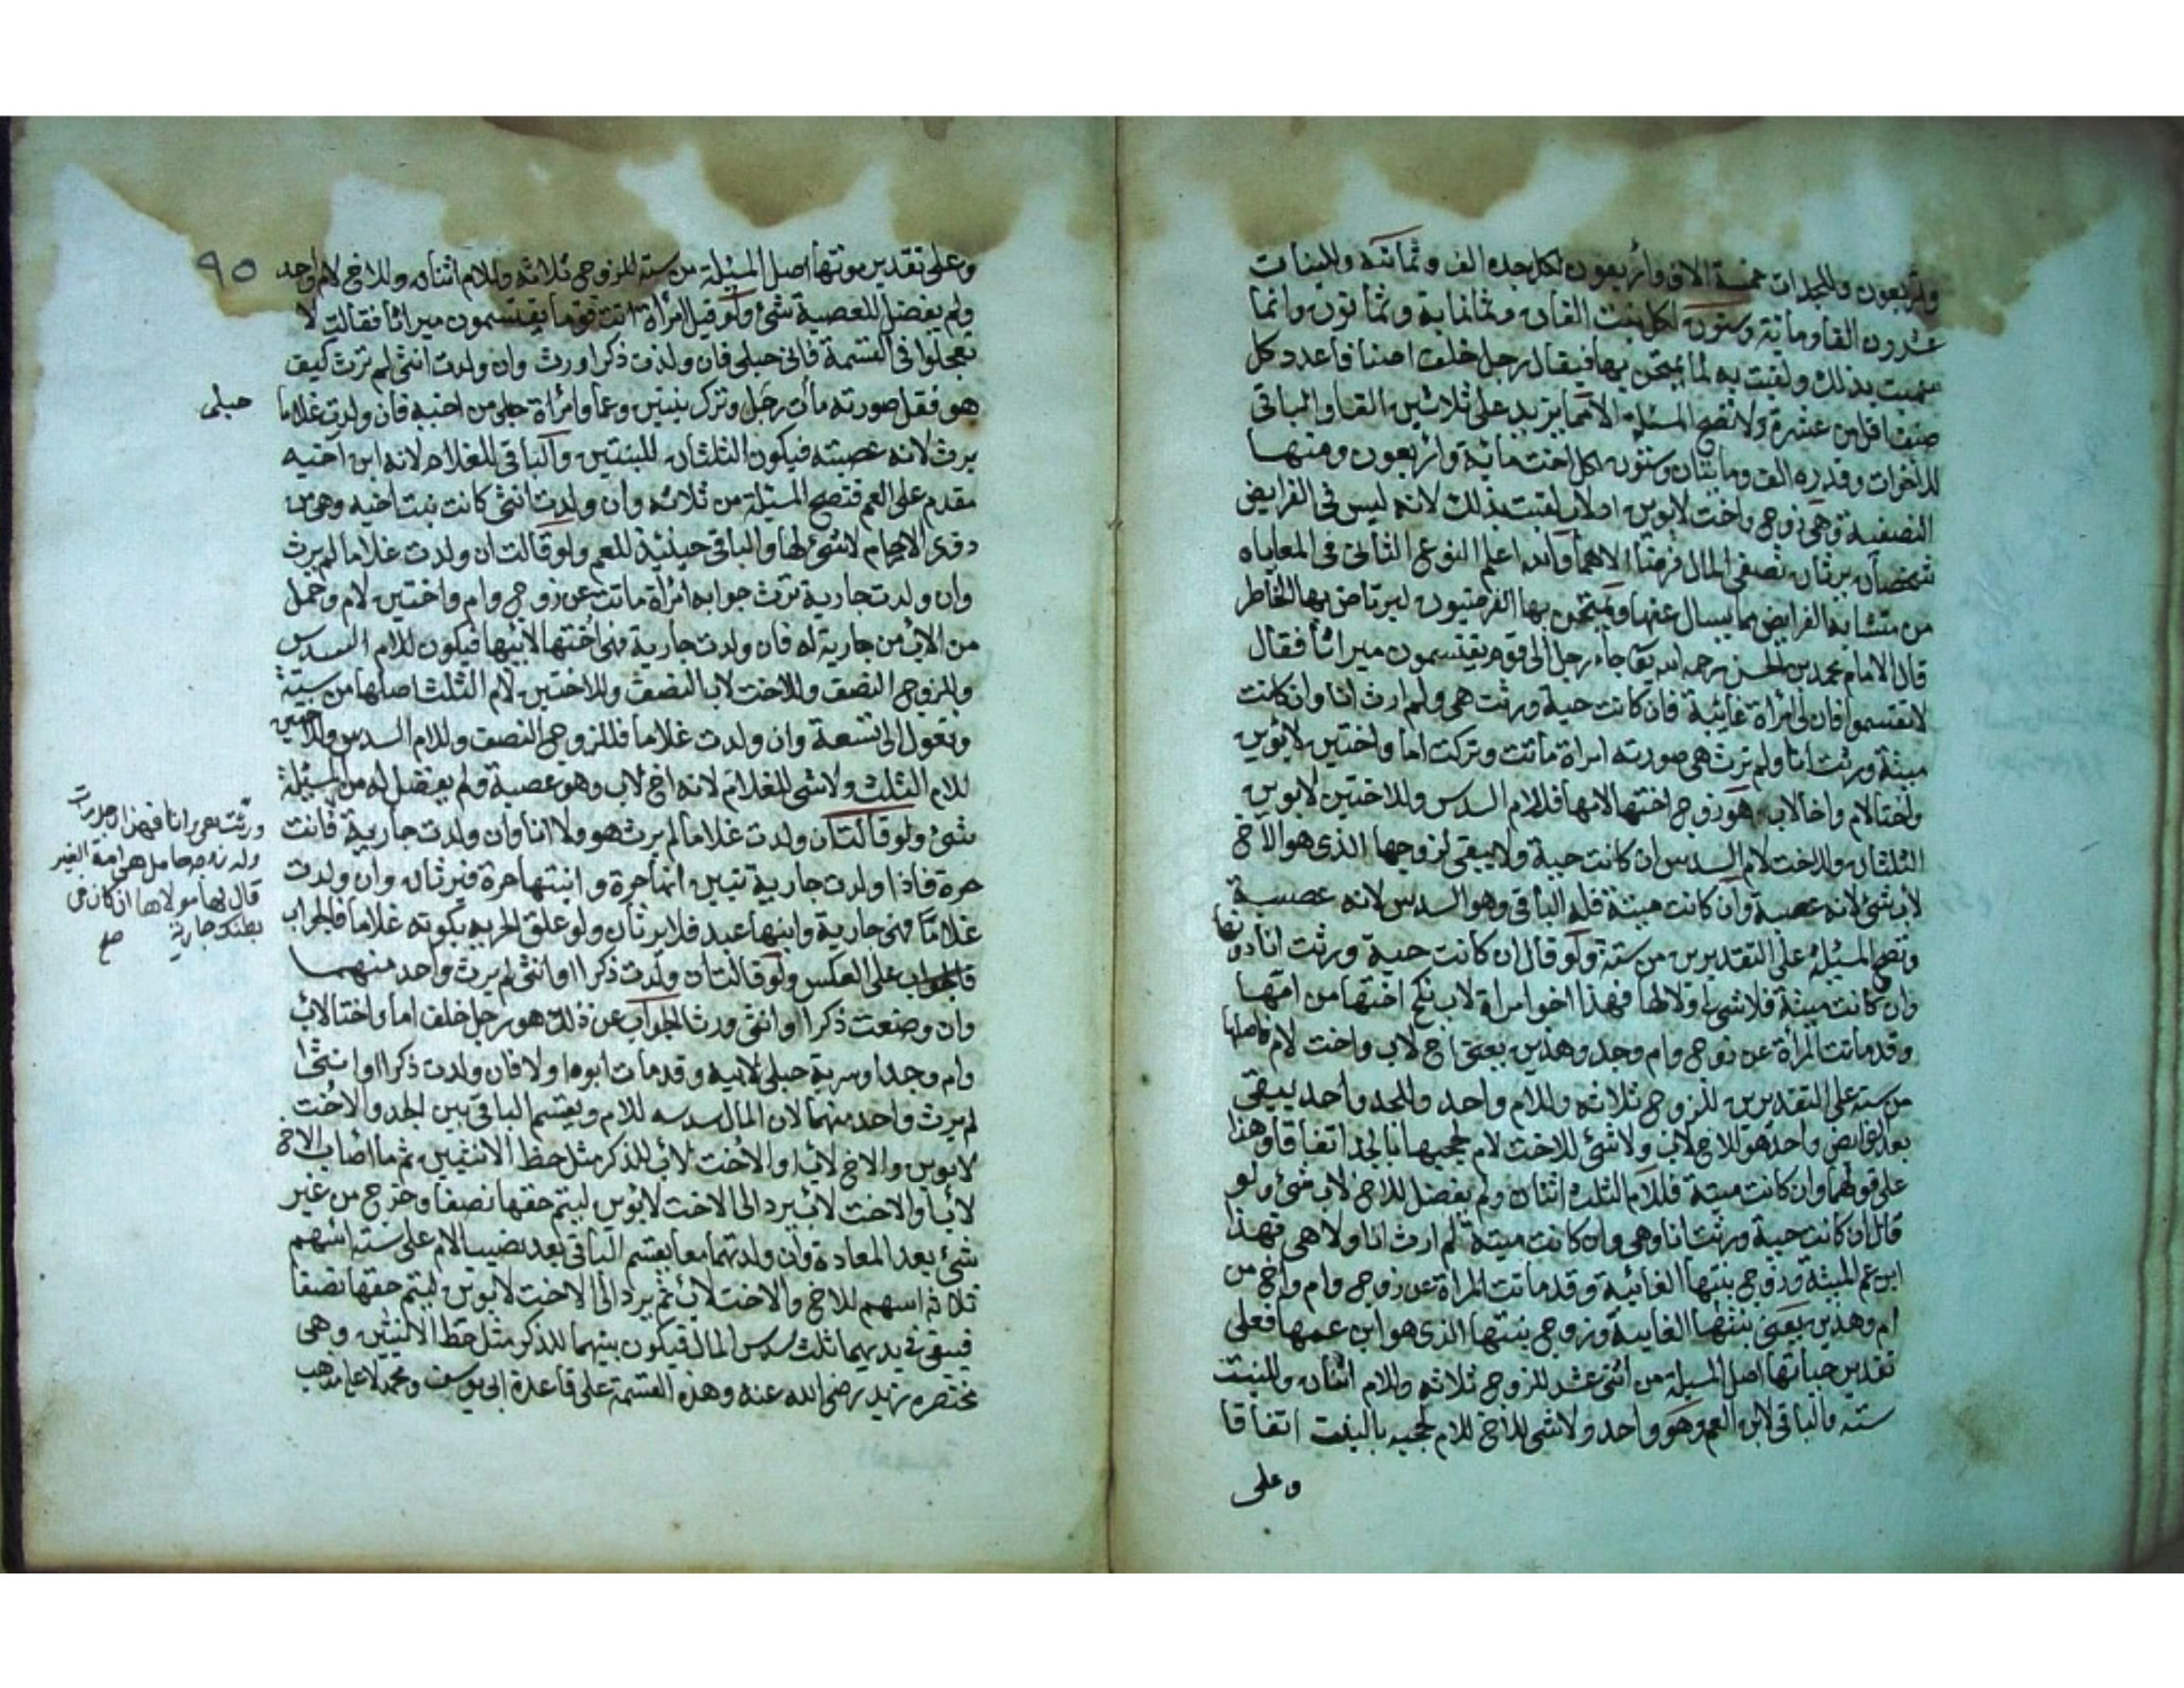 واربعون وللجدات خمسة الاف واربعون لكل جدة الف وثمانية وللبنات
عشرون الفا ومائة وستون لكل بنت الفان وثمانماية وثمانون وانما
سميت بذلك ولقبت به لما يمتحن بها فيقال رجل خلف اصنافا عدد كل
صنف اقل من عشرة ولا تصح المسئلة الا مما يزيد على ثلاثين الفا والباقي
للاخوات وقدره الف ومايتان وستون لكل اخت مائة واربعون ومنها
النصفية وهي زوج واخت لابوين اولاب لقبت بذلك لانه ليس في الفرايض
شخصان يرثان نصفي المال فرضا الا هما والله اعلم النوع الثاني في المعاياه
من متشابه الفرايض مما يسال عنها ويمتحن بها الفرضيون ليرتاض بها الخاطر
قال الامام محمد بن الحسن رحمه الله تعا جاء رجل الى قوم يقتسمون ميراثا فقال
لا تقتسموا فان لي امراة غائبة فان كانت حية ورثت هي ولم ارث انا وان كانت
ميتة ورثت انا ولم ترث هي صورته امراة ماتت وتركت اما واختين لابوين
واختا لام واخا لاب هو زوج اختها لامها فللام السدس وللاختين لابوين
الثلثان وللاخت لام السدس ان كانت حية ولا يبقى لزوجها الذي هو الاخ
لاب شئ لانه عصبة وان كانت ميتة فله الباقي وهو السدس لانه عصبة
وتصح المسئلة على التقديرين من ستة ولو قال ان كانت حية ورثت انا دونها
وان كانت ميتة فلا شئ لي ولا لها فهذا اخو امراة لاب نكح اختها من امها
وقد ماتت المرأة عن زوج وام وجد وهذين يعني اخ لاب واخت لام فاصلها
من ستة على التقديرين للزوج ثلاثة وللام واحد وللجد واحد يبقى
بعد الفرايض واحد هو للاخ لاب ولا شئ للاخت لام لحجبها بالجد اتفاقا وهذا
على قولهما وان كانت ميتة فللام الثلث اثنان ولم يفضل للاخ لاب شئ ولو
قال ان كانت حية ورثت انا وهي وان كانت ميتة لم ارث انا ولا هي فهذا
ابن عم الميتة وزوج بنتها الغائبة وقد ماتت المراة عن زوج وام واخ من
ام وهذين يعني بنتها الغايبة وزوج بنتها الذي هو ابن عمها فعلى
تقدير حياتها اصل المسيلة من اثني عشر للزوج ثلاثة وللام اثنان وللبنت
ستة والباقي لابن العم وهو واحد ولا شئ للاخ للام لحجبه بالبنت اتفاقا
وعلى
٩٥
وعلى تقدير موتها اصل المسئلة من ستة للزوج ثلاثة وللام اثنان وللاخ لام واحد
ولم يفضل للعصبة شئ ولو قيل امراة اتت قوما يقتسمون ميراثا فقالت لا
تعجلوا في القسمة فاني حبلى فان ولدت ذكرا ورث وان ولدت انثى لم ترث كيف
هو فقل صورته مات رجل وترك بنتين وعما وامراة حبلى من اخيه فان ولدت غلاما
حبلى
يرث لانه عصبته فيكون الثلثان للبنتين والباقي للغلام لانه ابن اخيه
مقدم على العم فتصح المسئلة من ثلاثة وان ولدت انثى كانت بنت اخيه وهي من
ذوي الارحام لا شئ لها والباقي حينئذ للعم ولو قالت ان ولدت غلاما لم يرث
وان ولدت جارية ترث جوابه امرأة ماتت عن زوج وام واختين لام وحمل
من الاب من جارية له فان ولدت جارية فهي اختها لابيها فيكون للام السدس
وللزوج النصف وللاخت لاب النصف وللاختين لام الثلث اصلها من ستة
وتعول الى تسعة وان ولدت غلاما فللزوج النصف وللام السدس وللاختين
للام الثلث ولا شئ للغلام لانه اخ لاب وهو عصبة ولم يفضل له من المسئلة
شئ ولو قالت ان ولدت غلاما لم يرث هو ولا انا وان ولدت جارية فانت
ورثت هي وانا فهذا رجل مات
وله زوجه حامل هي امة الغير
قال لها مولاها ان كان في
بطنك جارية صح
حرة فاذا ولدت جارية تبين انها حرة وابنتها حرة فترثان وان ولدت
غلاما فهي جارية وابنها عبد فلا يرثان ولو علق الحرية بكونه غلاما فالجواب
على العكس ولو قالت ان ولدت ذكرا او انثى لم يرث واحد منهما
وان وضعت ذكرا وانثى ورثا الجواب عن ذلك هو رجل خلف اما واختا لاب
وام وجدا وسرية حبلى لابيه وقد مات ابوه اولا فان ولدت ذكرا او انثى
لم يرث واحد منهما لان المال سدسه للام ويقسم الباقي بين الجد والاخت
لابوين والاخ لاب او الاخت لاب للذكر مثل حظ الانثيين ثم ما اصاب الاخ
لاب او الاخت لاب يرد الى الاخت لابوين ليتم حقها نصفا وخرج من غير
شئ بعد المعادة وان ولدتهما معا يقسم الباقي بعد نصيب الام على ستة اسهم
ثلاثة اسهم للاخ والاخت لاب ثم يرد الى الاخت لابوين ليتم حقها نصفا
فيبقى في يديهما ثلث سدس المال فيكون بينهما للذكر مثل حظ الانثيين وهي
مختصرة زيد رضي الله عنه وهذه القسمة على قاعدة ابي يوسف ومحمد لا على مذهب